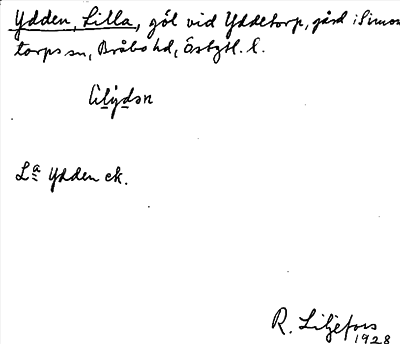 Ydden, Lilla, göl vid Yddetorp, gård i Simons
torps sn, Bråbo hd, Östgtl. l.
lilydsn
La Ydden ek.
R. Liljefors
1928